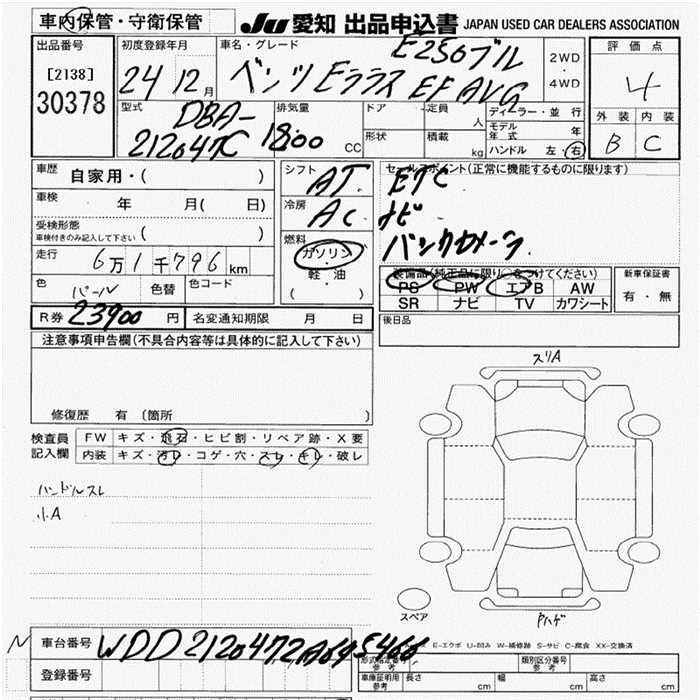 車内保管・守衛保管 JU 愛知 出品申込書 JAPAN USED CAR DEALERS ASSOCIATION
出品番号 初度登録年月 車名・グレード 2WD・4WD 評価点
[2138] 24 12月 ベンツ Eクラス E250ブル EF AVG 4
30378
型式 排気量 ドア 定員 人 ディーラー・並行 外装 内装
DBA-212047C 1800 CC 形状 積載 kg モデル年式 年 B C
ハンドル 左・右
車歴 自家用・( ) シフト AT セールスポイント(正常に機能するものに限ります)
車検 年 月( 日) 冷房 AC ETC
受検形態 ( ) ナビ
車検付きのみ記入して下さい 燃料 ガソリン バックカメラ
走行 6万1千796km 軽・油
色 パール 色替 色コード ( )
装備品(純正品に限り○をつけてください) 新車保証書
PS PW エアB AW 有・無
SR ナビ TV カワシート
R券 23900 円 名変通知期限 月 日 後日品
注意事項申告欄(不具合内容等は具体的に記入して下さい)
修復歴 有 (箇所 )
検査員記入欄 FW キズ・飛石・ヒビ割・リペア跡・X要
内装 キズ・汚レ・コゲ・穴・スレ・キレ・破レ
ハンドルスレ
小A
スリA
スペア
Pハゲ
車台番号 WDD2120472A695466
E-エクボ U-凹み W-補修跡 S-サビ C-腐食 XX-交換済
登録番号 形式指定番号 参考 類別区分番号 参考
車庫証明用 参考 長さ cm 幅 cm 高さ cm